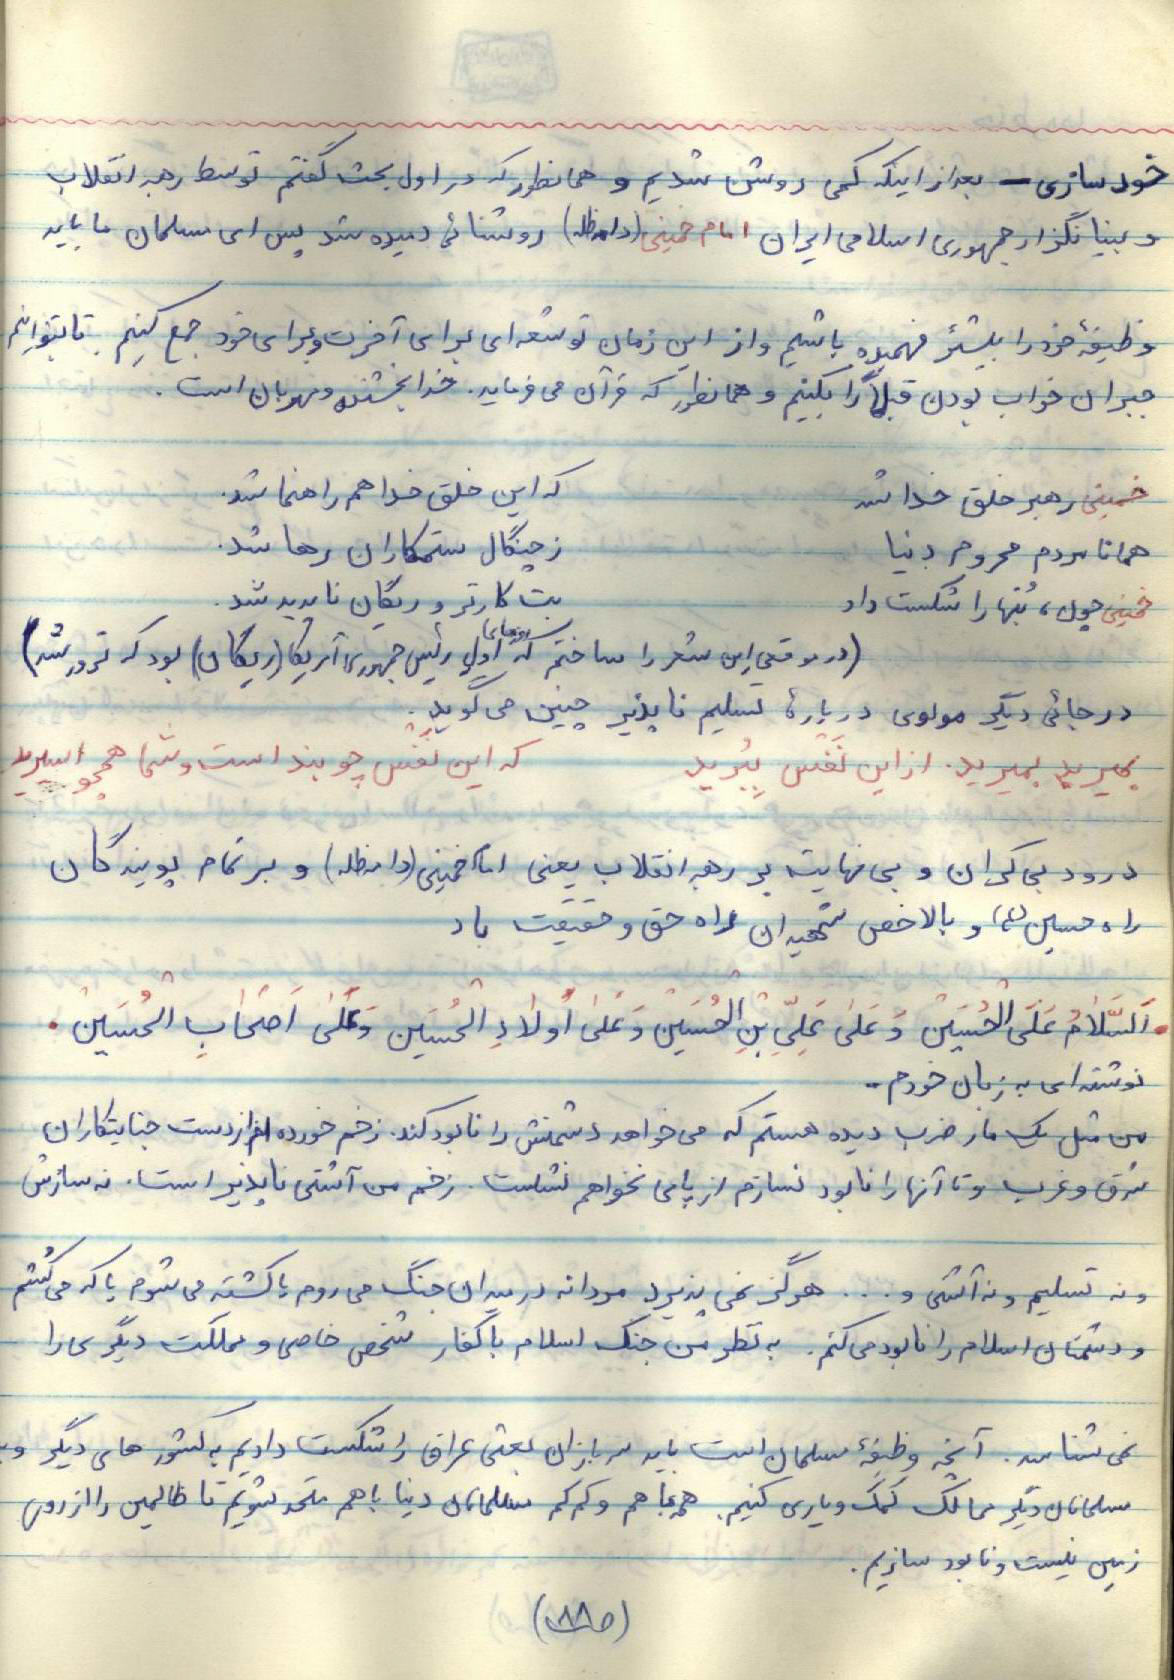 خودسازی - بعد از اینکه کمی روشن شدیم و همانطور که در اول بحث گفتم توسط رهبر انقلاب
و بنیانگزار جمهوری اسلامی ایران امام خمینی (دامظله) روشنائی دمیده شد پس ای مسلمان ما باید
وظیفهٔ خود را بیشتر فهمیده باشیم و از این زمان توشه‌ای برای آخرت و برای خود جمع کنیم تا بتوانیم
جبران خواب بودن قبلاً را بکنیم و همانطور که قرآن می فرماید. خدا بخشنده و مهربان است.
خمینی رهبر خلق خدا شد که این خلق خدا هم راهنما شد.
همانا مردم محروم دنیا ز چنگال ستمکاران رها شد.
خمینی چون، بُتها را شکست داد بت کارتر و ریگان ناپدید شد.
(در موقعی این شعر را ساختم که روزهای اول رئیس جمهوری آمریکا (ریگان) بود که ترور شد)
در جائی دیگر مولوی دربارهٔ تسلیم ناپذیر چنین می گوید.
بمیرید بمیرید. از این نَفْس بِبُرید که این نَفْس چو بند است و شما همچو اسیرید
درود بی کران و بی نهایت بر رهبر انقلاب یعنی امام خمینی (دامظله) و بر تمام پویندگان
راه حسین (ع) و بالاخص شهیدان راه حق و حقیقت باد
اَلسَّلامُ عَلَی الْحُسَیْنْ وَ عَلیٰ عَلِیِّ بْنِ الْحُسَیْنْ وَ عَلیٰ اَولادِ الْحُسَیْن وَ عَلیٰ اَصْحٰابِ الْحُسَیْنْ.
نوشته‌ای به زبان خودم -
من مثل یک مار ضرب دیده هستم که می خواهد دشمنش را نابود کند. زخم خورده ام از دست جنایتکاران
شرق و غرب و تا آنها را نابود نسازم از پا می نخواهم نشست. زخم من آشتی ناپذیر است. نه سازش
و نه تسلیم و نه آشتی و ... هرگز نمی پذیرد مردانه در میدان جنگ می روم یا کشته می شوم یا که می کُشم
و دشمنان اسلام را نابود می کنم. به نظر من جنگ اسلام با کفار شخص خاصی و مملکت دیگری را
نمی شناسد. آنچه وظیفهٔ مسلمان است باید سربازان بعثی عراق را شکست دادیم به کشورهای دیگر و به
مسلمانان دیگر ممالک کمک و یاری کنیم. همه با هم و کم کم مسلمانان دنیا با هم متحد شویم تا ظالمین را از روی
زمین نیست و نابود سازیم.
(ص ۸۸)